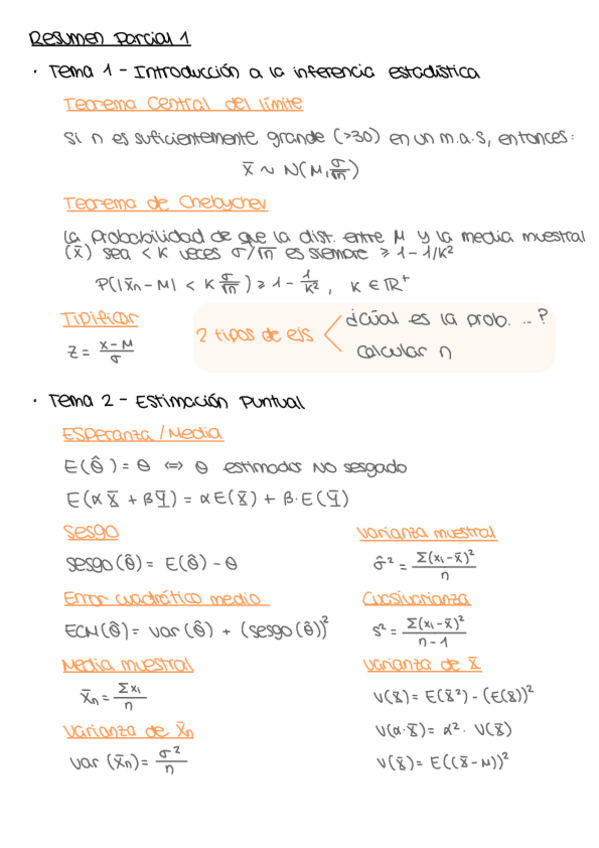 Resumen Parcial 1
· Tema 1 - Introducción a la inferencia estadística
Teorema Central del límite
Si n es suficientemente grande (>30) en un m.a.s, entonces:
X̄ ~ N(M, σ/√n)
Teorema de Chebychev
La probabilidad de que la dist. entre M y la media muestral
(x̄) sea < K veces σ/√n es siempre ≥ 1 - 1/K²
P(|x̄n - M| < K σ/√n) ≥ 1 - 1/K² , K ∈ ℝ⁺
Tipificar
Z = x - M / σ
2 tipos de ejs
¿cuál es la prob. ... ?
calcular n
· Tema 2 - Estimación Puntual
Esperanza / Media
E(θ̂) = θ ⇔ θ estimador NO sesgado
E(αX + βY) = αE(X) + β·E(Y)
Sesgo
sesgo(θ̂) = E(θ̂) - θ
Varianza muestral
σ̂² = Σ(xi - x̄)² / n
Error cuadrático medio
ECM(θ̂) = var(θ̂) + (sesgo(θ̂))²
Cuasivarianza
s² = Σ(xi - x̄)² / n - 1
Media muestral
x̄n = Σxi / n
Varianza de X
V(X) = E(X²) - (E(X))²
Varianza de X̄n
var(x̄n) = σ² / n
V(α·X) = α² · V(X)
V(X) = E((X - M))²